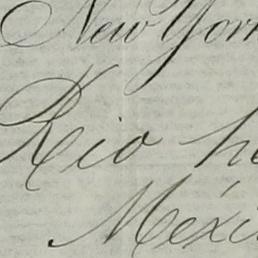 New York
Rio
Méxi